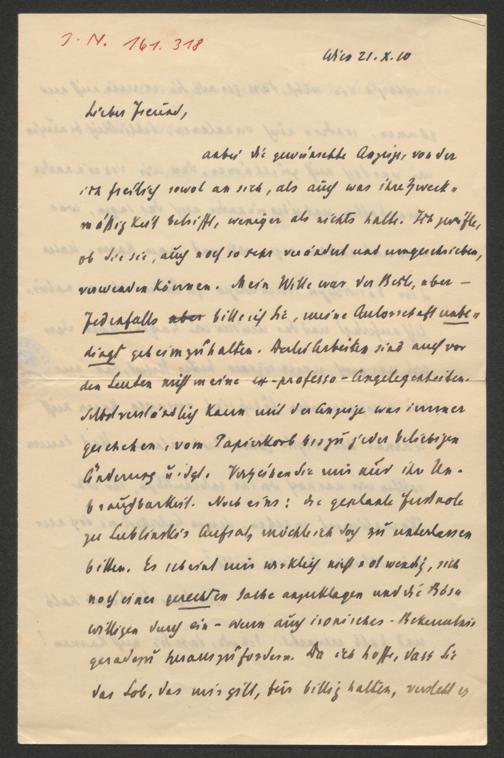 J. N. 161.318
Wien 21. X. 10
Lieber Freund,
anbei die gewünschte Anzeige, von der
ich freilich sowol an sich, als auch was ihre Zweck-
mäßigkeit betrifft, weniger als nichts halte. Ich zweifle,
ob Sie sie, auch noch so sehr verändert und umgeschrieben,
verwenden können. Mein Wille war der Beste, aber –
Jedenfalls aber bitte ich Sie, meine Autorschaft unbe-
dingt geheimzuhalten. Derlei Arbeiten sind auch vor
den Leuten nicht meine ex-professo-Angelegenheiten.
Selbstverständlich kann mit der Anzeige was immer
geschehen, vom Papierkorb bis zu jeder beliebigen
Änderung u. dgl. Verzeihen Sie mir nur ihre Un-
brauchbarkeit. Noch eins: die geplante Fussnote
zu Lublinski's Aufsatz möchte ich Sie zu unterlassen
bitten. Es scheint mir wirklich nicht notwendig, sich
noch einer gerechten Sache anzuklagen und die Bös-
willigen durch ein – wenn auch ironisches – Bekenntnis
geradezu herauszufordern. Da ich hoffe, dass Sie
das Lob, das mir gilt, für billig halten, versteht es